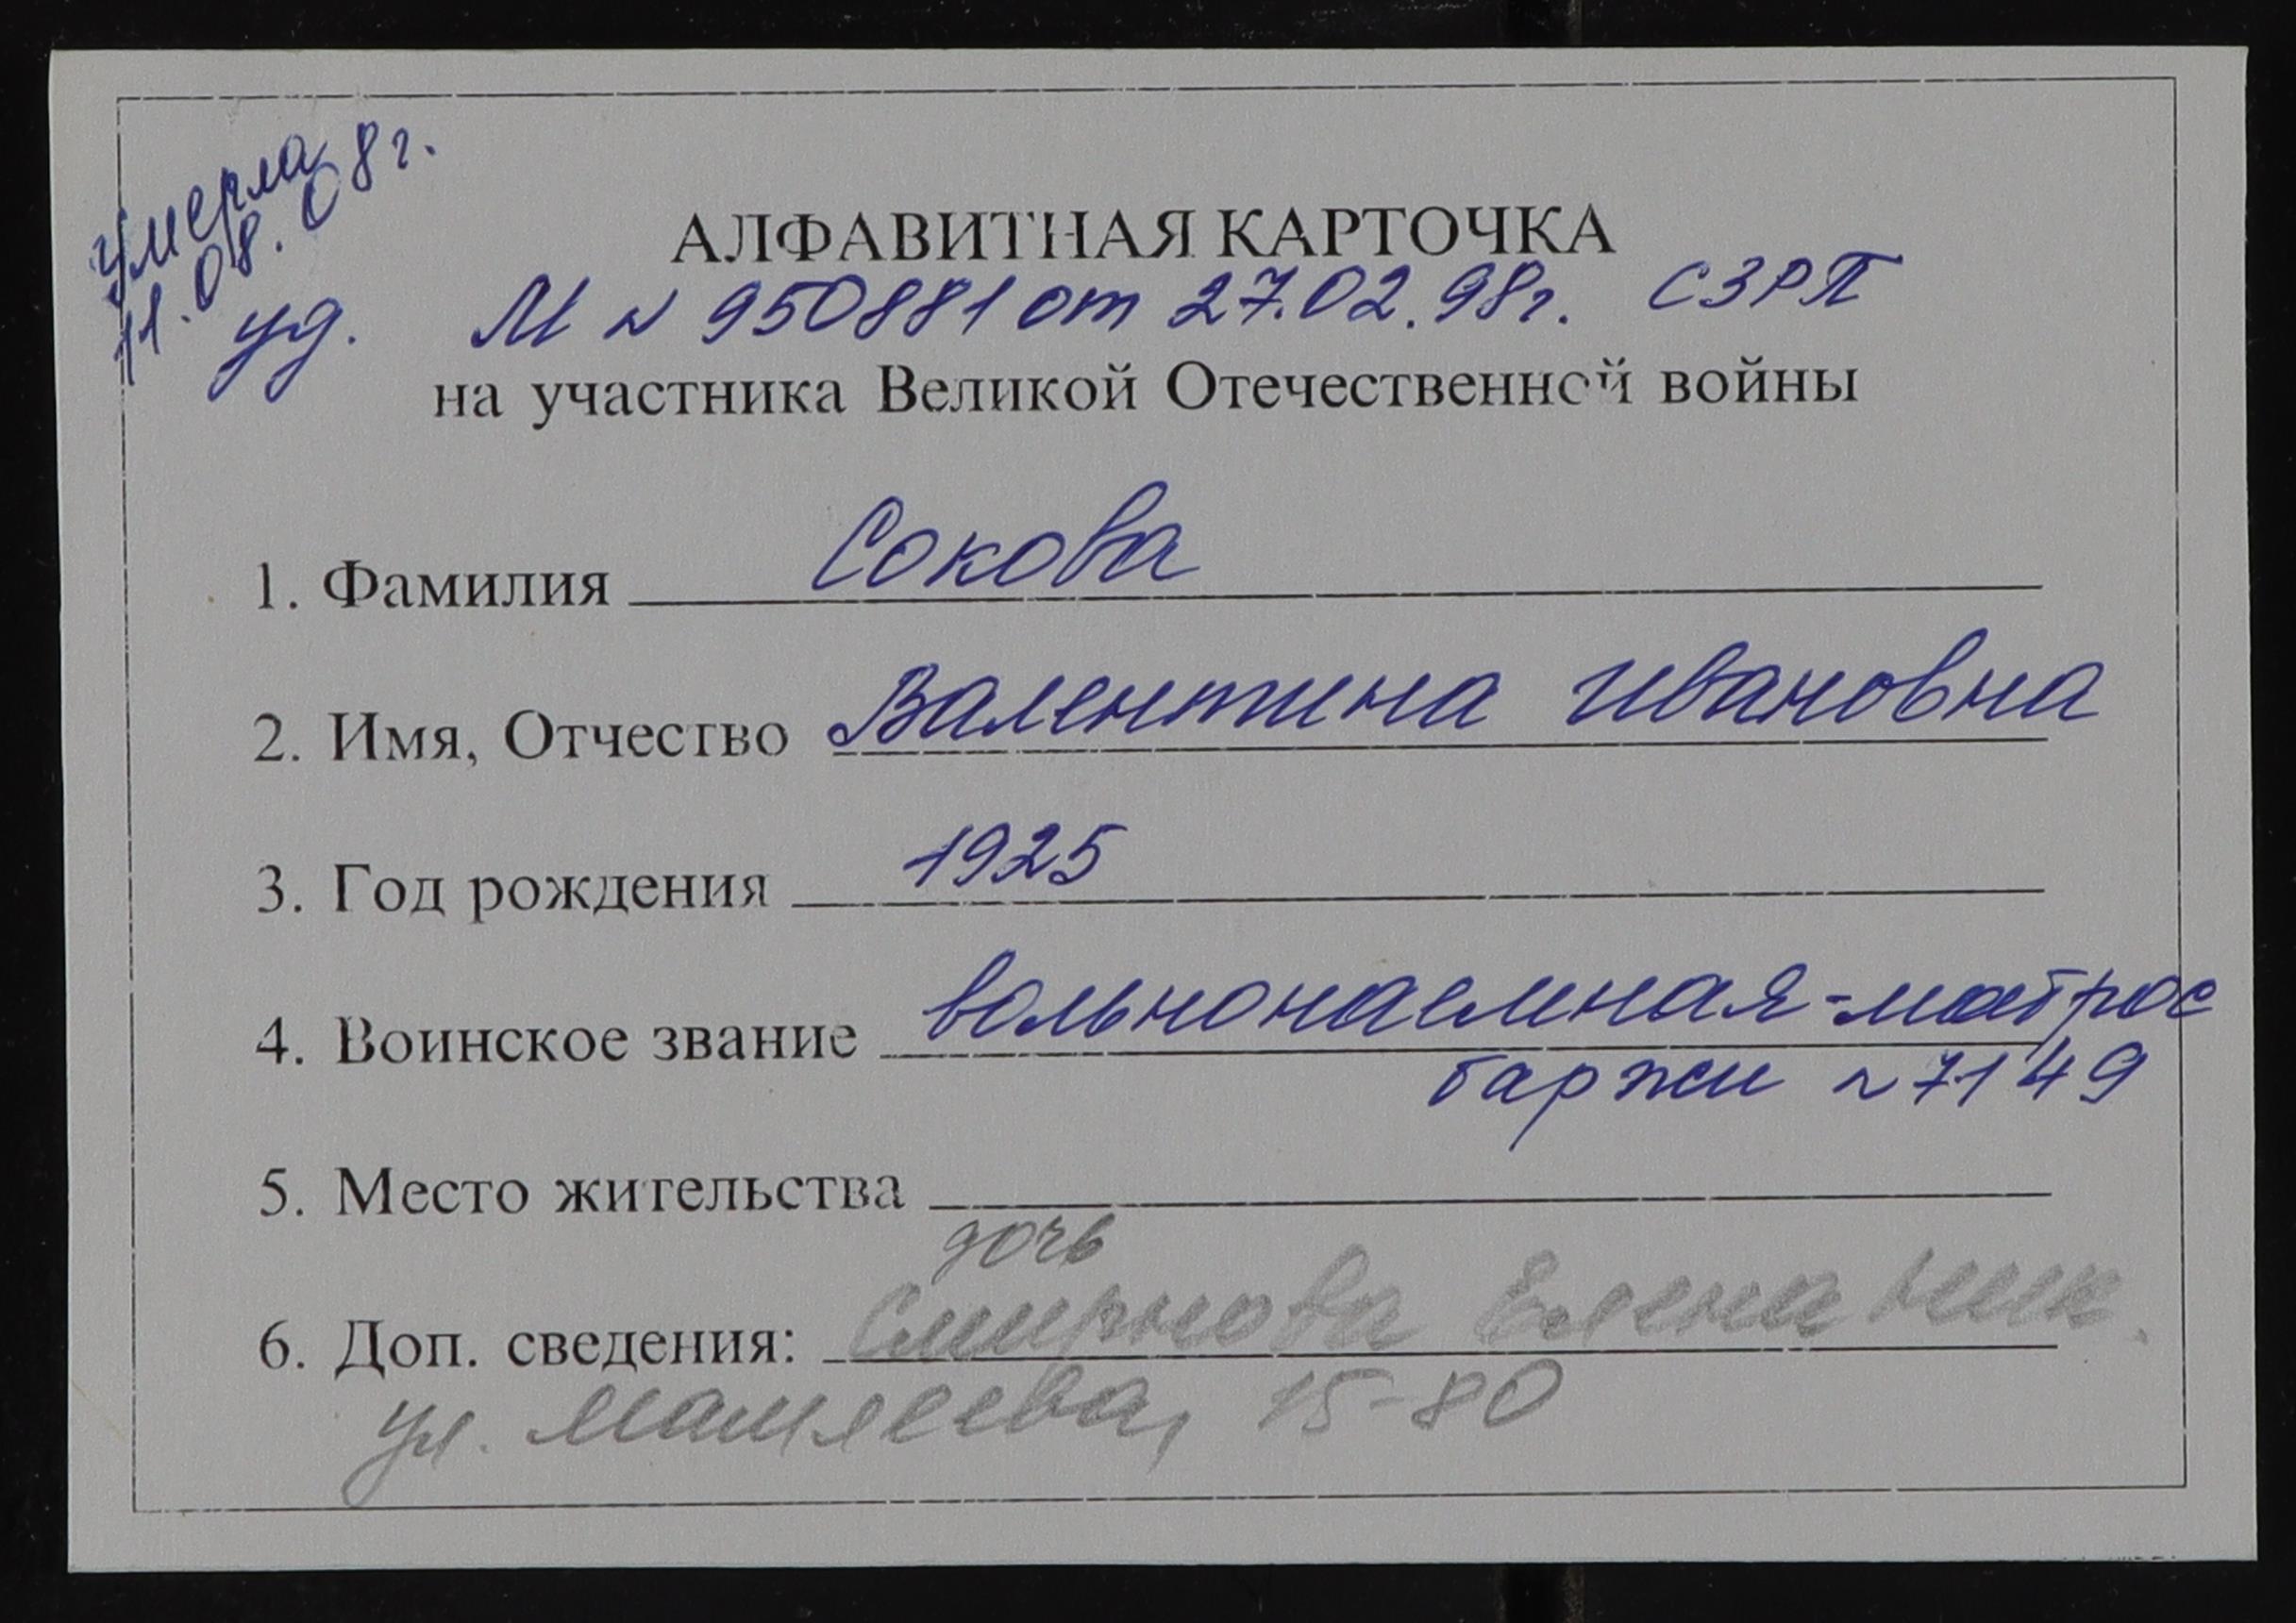 умерла
11.08.08г.
АЛФАВИТНАЯ КАРТОЧКА
уд. М № 950881 от 27.02.98г. СЗРП
на участника Великой Отечественной войны
1. Фамилия Сокова
2. Имя, Отчество Валентина Ивановна
3. Год рождения 1925
4. Воинское звание вольнонаемная-матрос
баржи № 7149
5. Место жительства
дочь
6. Доп. сведения: Смирнова Елена Ник.
ул. Машлеева, 15-80